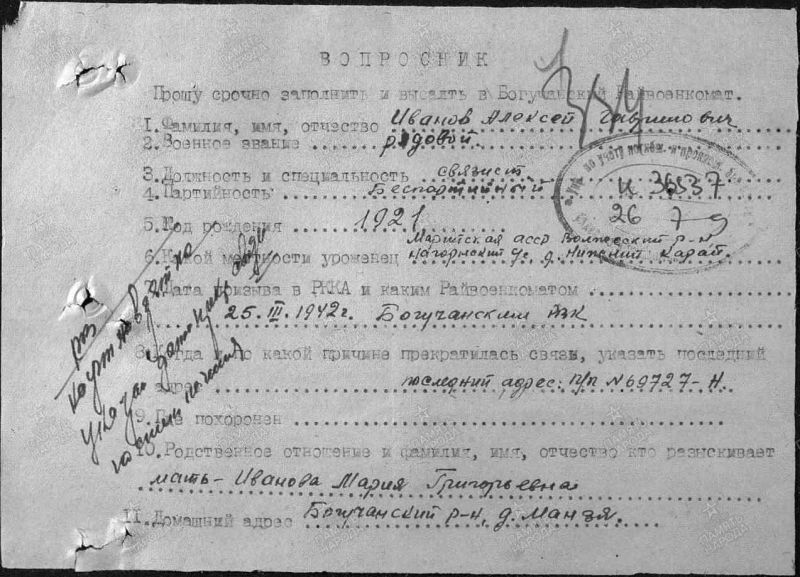 ВОПРОСНИК
Прошу срочно заполнить и выслать в Богучанский Райвоенкомат.
1. Фамилия, имя, отчество Иванов Алексей Гаврилович
2. Военное звание рядовой.
3. Должность и специальность связист
4. Партийность Беспартийный
5. Год рождения 1921
6. Какой местности уроженец Марийская асср Волжский р-н
Нагорнский с/с, д. Нижний Карай.
7. Дата призыва в РККА и каким Райвоенкоматом
25. III. 1942г. Богучанским РВК
8. Когда и по какой причине прекратилась связь, указать последний
адрес последний адрес: п/п №69727-Н.
9. Где похоронен
10. Родственное отношение и фамилия, имя, отчество кто разыскивает
мать - Иванова Мария Григорьевна
11. Домашний адрес Богучанский р-н, д. Манзя.
И 36537
26 7
ПАМЯТЬ НАРОДА